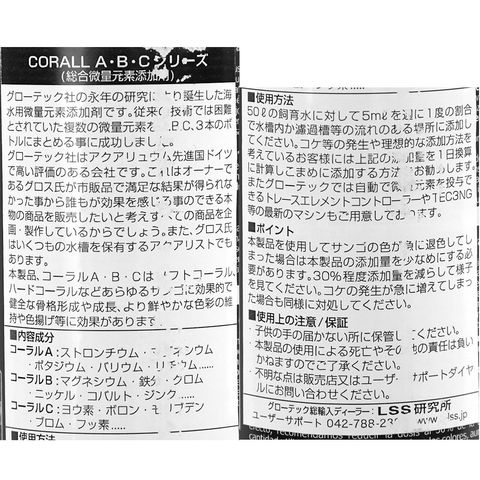 CORALL A・B・Cシリーズ
(総合微量元素添加剤)
グローテック社の永年の研究により誕生した海
水用微量元素添加剤です。従来の技術では困難
とされていた複数の微量元素をA.B.C、3本のボ
トルにまとめる事に成功しました。
グローテック社はアクアリュウム先進国ドイツ
で高い評価のある会社です。これはオーナーで
あるグロス氏が市販品で満足な結果が得られな
かった事から誰もが効果を感じる事のできる本
物の商品を販売したいと考えすべての商品を企
画・製作しているからでしょう。また、グロス氏
はいくつもの水槽を保有するアクアリストでも
あります。
本製品、コーラルA・B・Cはソフトコーラル、
ハードコーラルなどあらゆるサンゴに効果的で
健全な骨格形成や成長、より鮮やかな色彩の維
持や色揚げ等に効果があります。
■内容成分
コーラルA：ストロンチウム・マグネシウム
ポタジウム・バリウム・リチウム......
コーラルB：マグネシウム・鉄・クロム
ニッケル・コバルト・ジンク......
コーラルC：ヨウ素・ボロン・モリブデン
ブロム・フッ素......
■使用方法
■使用方法
50ℓの飼育水に対して5mℓを週に1度の割合
で水槽内か濾過槽等の流れのある場所に添加し
てください。コケ等の発生や理想的な添加方法を
考えているお客様には上記の添加量を1日換算
に計算しこまめに添加する方法をお勧めします。
またグローテックでは自動で微量元素を投与で
きるトレースエレメントコントローラーやTEC3NG
等の最新のマシンもご用意しております。
■ポイント
本製品を使用してサンゴの色が急に退色してし
まった場合は本製品の添加量を少なめにする必
要があります。30%程度添加量を減らして様子
を見てください。コケの発生が急に増えてしまっ
た場合も同様に対処してください。
■使用上の注意/保証
・子供の手の届かない所に保管してください。
・本製品の使用による死亡やその他の責任は負い
かねますのでご了承ください。
・不明な点は販売店又はユーザーサポートダイヤ
ルにお問い合わせください。
グローテック総輸入ディーラー：LSS研究所
ユーザーサポート 042-788-23